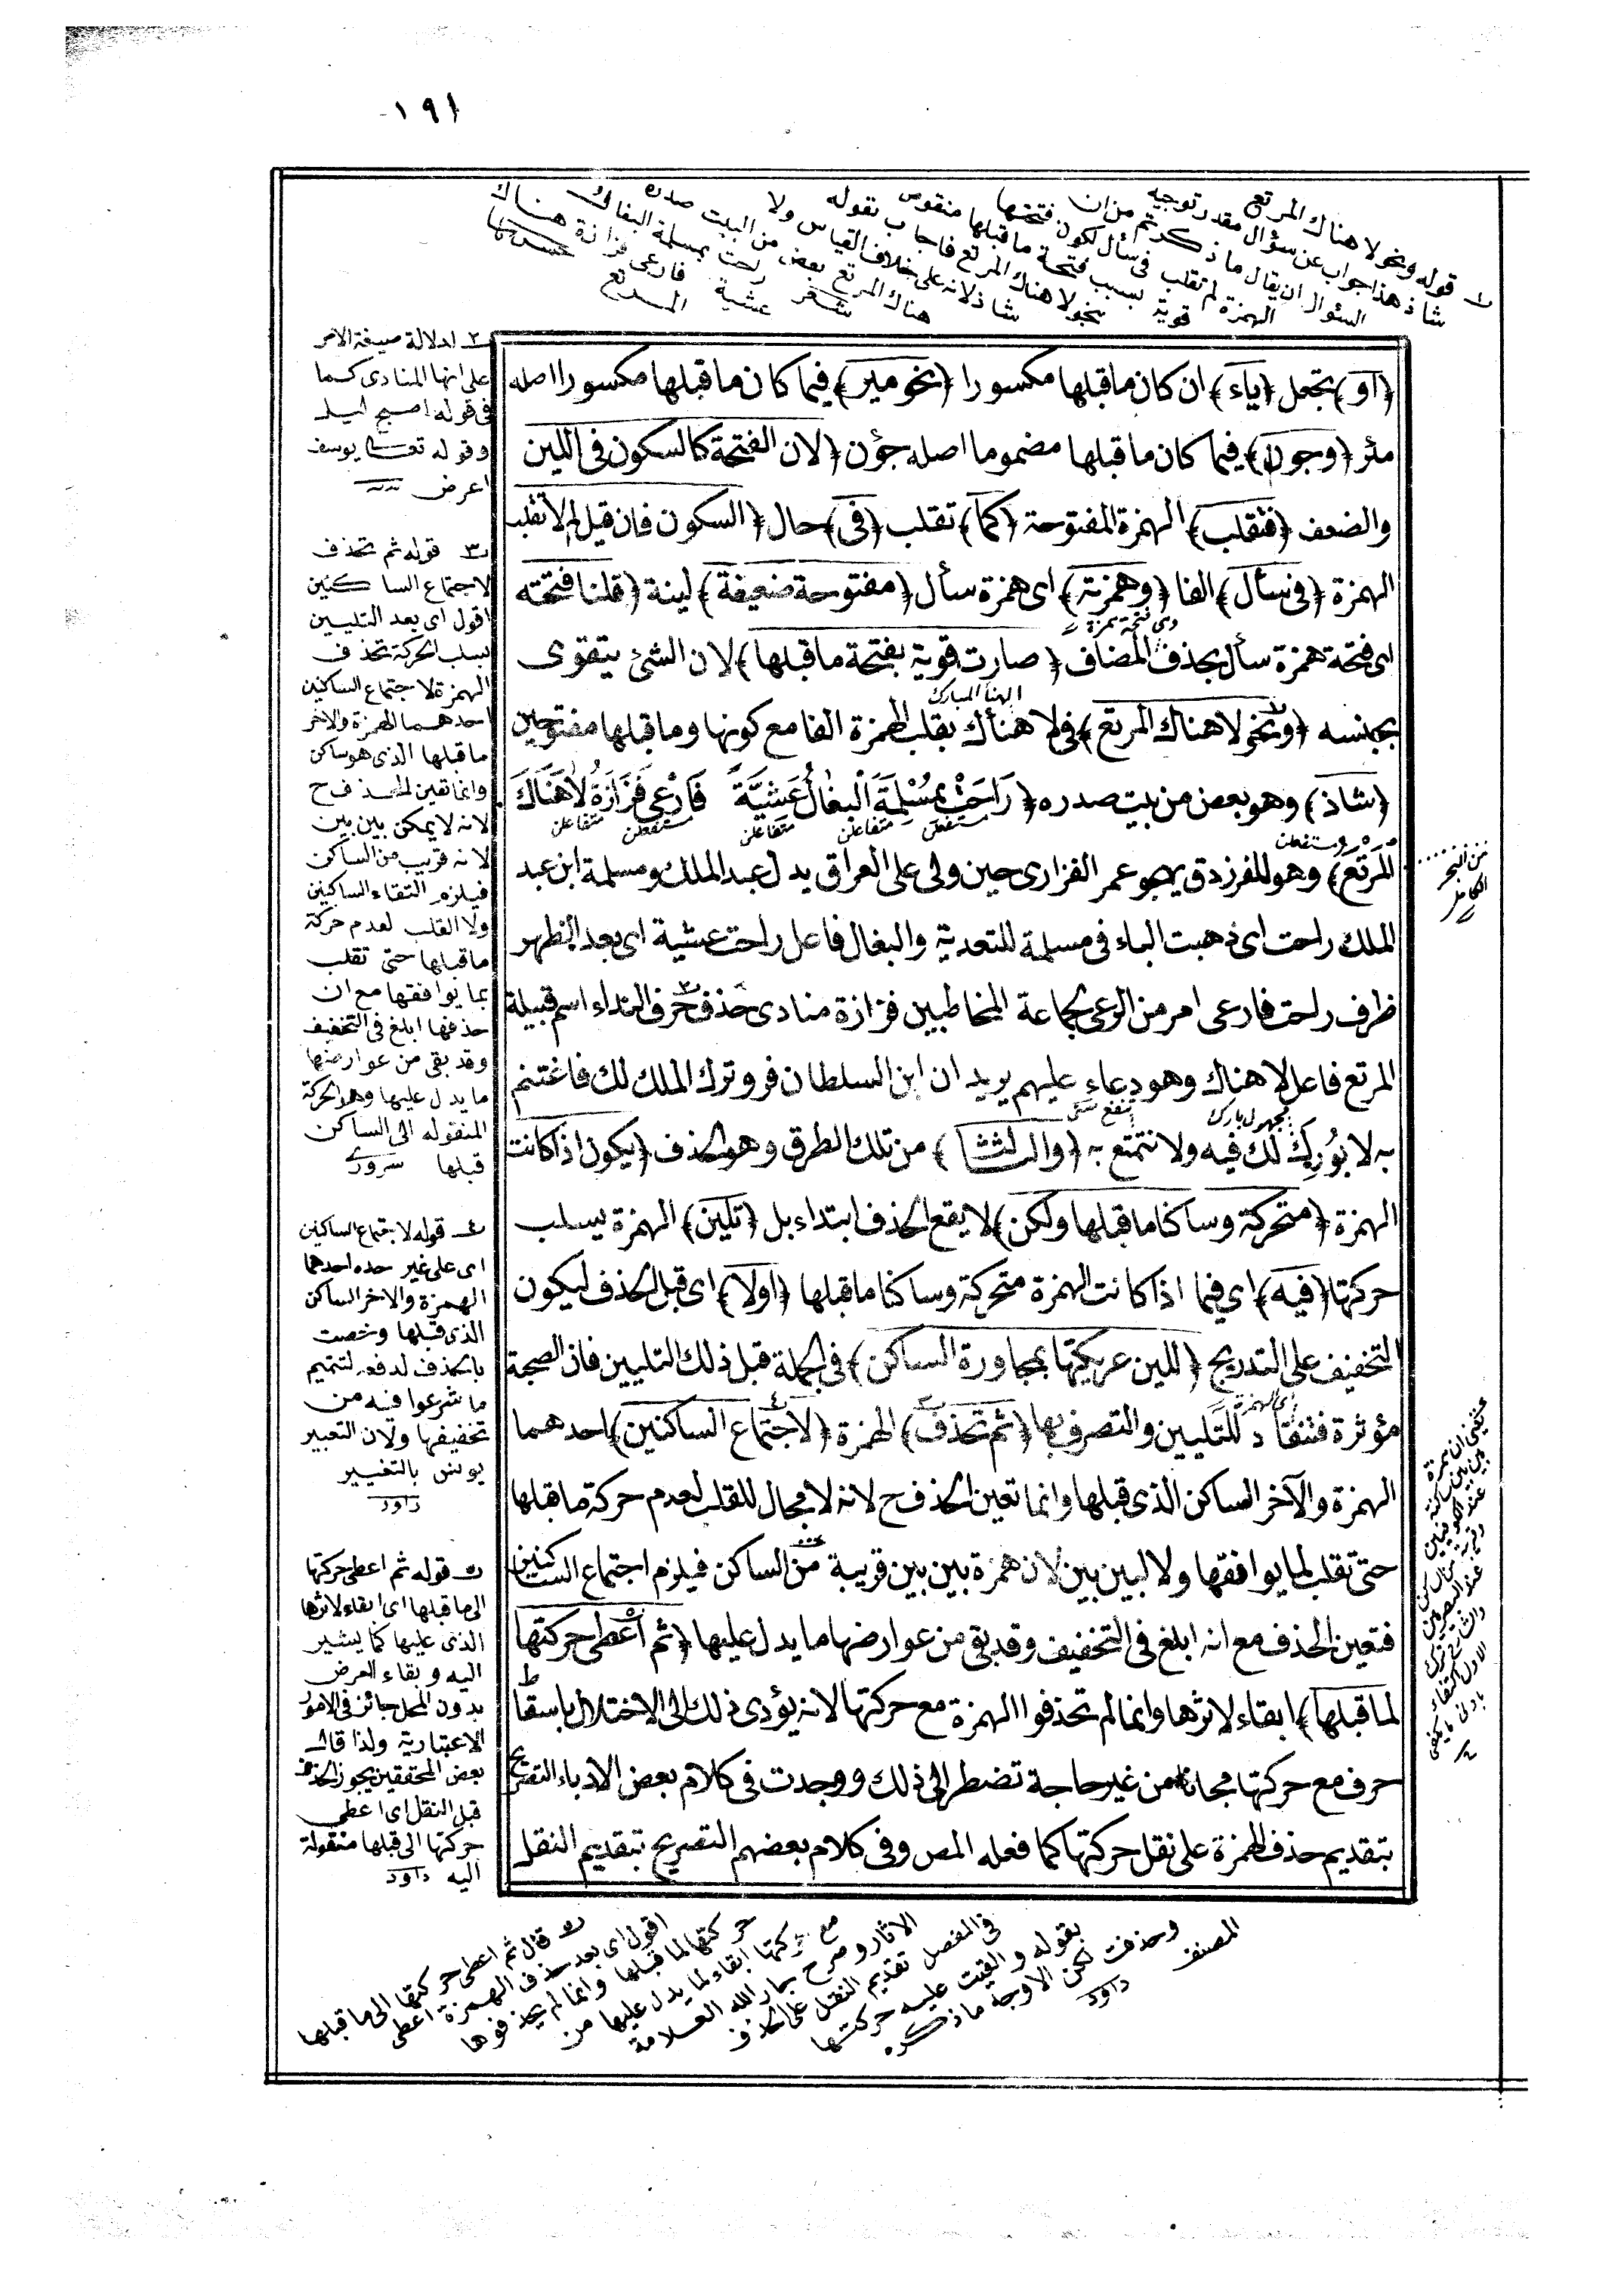 ١٩١
١ قوله ونحو لا هناك المرتع
شاذ هذا جواب عن سؤال مقدر توجيه
السؤال ان يقال ما ذكرتم من ان
الهمزة لم تقلب فى سأل لكون فتحتها
قوية بسبب فتحة ما قبلها منقوض
بنحو لا هناك المرتع فاجاب بقوله
شاذ لانه على خلاف القياس ولا
هناك المرتع بعض من البيت صدره
راحت بمسلمة البغال
عشية فارعى فزارة هناك
المرتع
﴿او﴾ تجعل ﴿ياء﴾ ان كان ما قبلها مكسورا ﴿نحو مير﴾ فيما كان ما قبلها مكسورا اصله
مئر ﴿وجون﴾ فيما كان ما قبلها مضموما اصله جؤن ﴿لان الفتحة كالسكون فى اللين
والضعف ﴿فتقلب﴾ الهمزة المفتوحة ﴿كما﴾ تقلب ﴿فى﴾ حال ﴿السكون فان قيل لم لا تقلب
الهمزة ﴿فى سأل﴾ الفا ﴿وهمزته﴾ اى همزة سأل ﴿مفتوحة ضعيفة﴾ لينة ﴿قلنا فتحته
وهى فتحة همزة
اى فتحة همزة سأل بحذف المضاف ﴿صارت قوية بفتحة ما قبلها﴾ لان الشئ يتقوى
الهنأ المبارك
بجنسه ﴿ونحو لا هناك المرتع﴾ فى لا هنأك بقلب الهمزة الفا مع كونها وما قبلها مفتوحين
﴿شاذ﴾ وهو بعض من بيت صدره ﴿رَاحَتْ بِمُسْلِمَةَ الْبِغَالُ عَشِيَّةً فَارْعَى فَزَارَةُ لَا هَنَاكَ
مستفعلن متفاعلن متفاعلن مستفعلن متفاعلن
مستفعلن
المرتع﴾ وهو للفرزدق يهجو عمر الفزارى حين ولى على العراق بدل عبد الملك ومسلمة ابن عبد
الملك راحت اى ذهبت الباء فى مسلمة للتعدية والبغال فاعل راحت عشية اى بعد الظهر
ظرف راحت فارعى امر من الرعى لجماعة المخاطبين فزازة منادى حذف حرف النداء اسم قبيلة
المرتع فاعل لا هناك وهو دعاء عليهم يريد ان ابن السلطان فر وترك الملك لك فاغتنم
مجهول بارك
به لا بُورِكَ لك فيه ولا نتمتع به ﴿والثالث﴾ من تلك الطرق وهو الحذف ﴿يكون اذا كانت
الهمزة ﴿متحركة وساكنا ما قبلها ولكن﴾ لا يقع الحذف ابتداء بل ﴿تلين﴾ الهمزة بسلب
حركتها ﴿فيه﴾ اى فيما اذا كانت الهمزة متحركة وساكنا ما قبلها ﴿اولا﴾ اى قبل الحذف ليكون
التخفيف على التدريج ﴿للين عريكتها بمجاورة الساكن﴾ فى الجملة قبل ذلك التليين فان الصحبة
اى الهمزة
مؤثرة فتنقاد للتليين والتصرف بها ﴿ثم تحذف﴾ الهمزة ﴿لاجتماع الساكنين﴾ احدهما
الهمزة والآخر الساكن الذى قبلها وانما تعين الحذف ح لانه لا مجال للقلب لعدم حركة ما قبلها
حتى تقلب لما يوافقها ولا لبين بين لان همزة بين بين قريبة من الساكن فيلزم اجتماع الساكنين
فتعين الحذف مع انه ابلغ فى التخفيف وقد بقى من عوارضها ما يدل عليها ﴿ثم اعطى حركتها
لما قبلها﴾ ابقاء لاثرها وانما لم تحذفوا الهمزة مع حركتها لانه يؤدى ذلك الى الاختلال باسقاط
حرف مع حركتها مجانا من غير حاجة تضطر الى ذلك ووجدت فى كلام بعض الادباء التصريح
بتقديم حذف الهمزة على نقل حركتها كما فعله المص وفى كلام بعضهم التصريح بتقديم النقل
من البحر
الكامل
٢ لدلالة صيغة الامر
على انها المنادى كما
فى قوله اصبح ليل
وقوله تعالى يوسف
اعرض
٣ قوله ثم تحذف
لاجتماع الساكنين
اقول اى بعد التليين
بسلب الحركة تحذف
الهمزة لاجتماع الساكنين
احدهما الهمزة والاخر
ما قبلها الذى هو ساكن
وانما تعين الحذف ح
لانه لا يمكن بين بين
لانه قريب من الساكن
فيلزم التقاء الساكنين
ولا القلب لعدم حركة
ما قبلها حتى تقلب
بما يوافقها مع ان
حذفها ابلغ فى التخفيف
وقد بقى من عوارضها
ما يدل عليها وهو الحركة
المنقوله الى الساكن
قبلها سرورى
٤ قوله لاجتماع الساكنين
اى على غير حده احدهما
الهمزة والاخر الساكن
الذى قبلها وخصت
بالحذف لدفعه لتتميم
ما شرعوا فيه من
تخفيفها ولان التعبير
يونس بالتغيير
داود
٥ قوله ثم اعطى حركتها
الى ما قبلها اى ابقاء لاثرها
الذى عليها كما يشير
اليه وبقاء العرض
بدون المحل جائز فى الامور
الاعتبارية ولذا قال
بعض المحققين يجوز الحذف
قبل النقل اى اعطى
حركتها الى قبلها منقولة
اليه داود
٥ قال ثم اعطى حركتها الى ما قبلها
اقول اى بعد حذف الهمزة اعطى
حركتها لما قبلها وانما لم يحذفوها
مع حركتها ابقاء لما يدل عليها من
الاثار وصرح جار الله العلامة
فى المفصل تقديم النقل على الحذف
بقوله والقيت عليه حركتها
وحذفت لكن الاوجه ما ذكره
المصنف داود